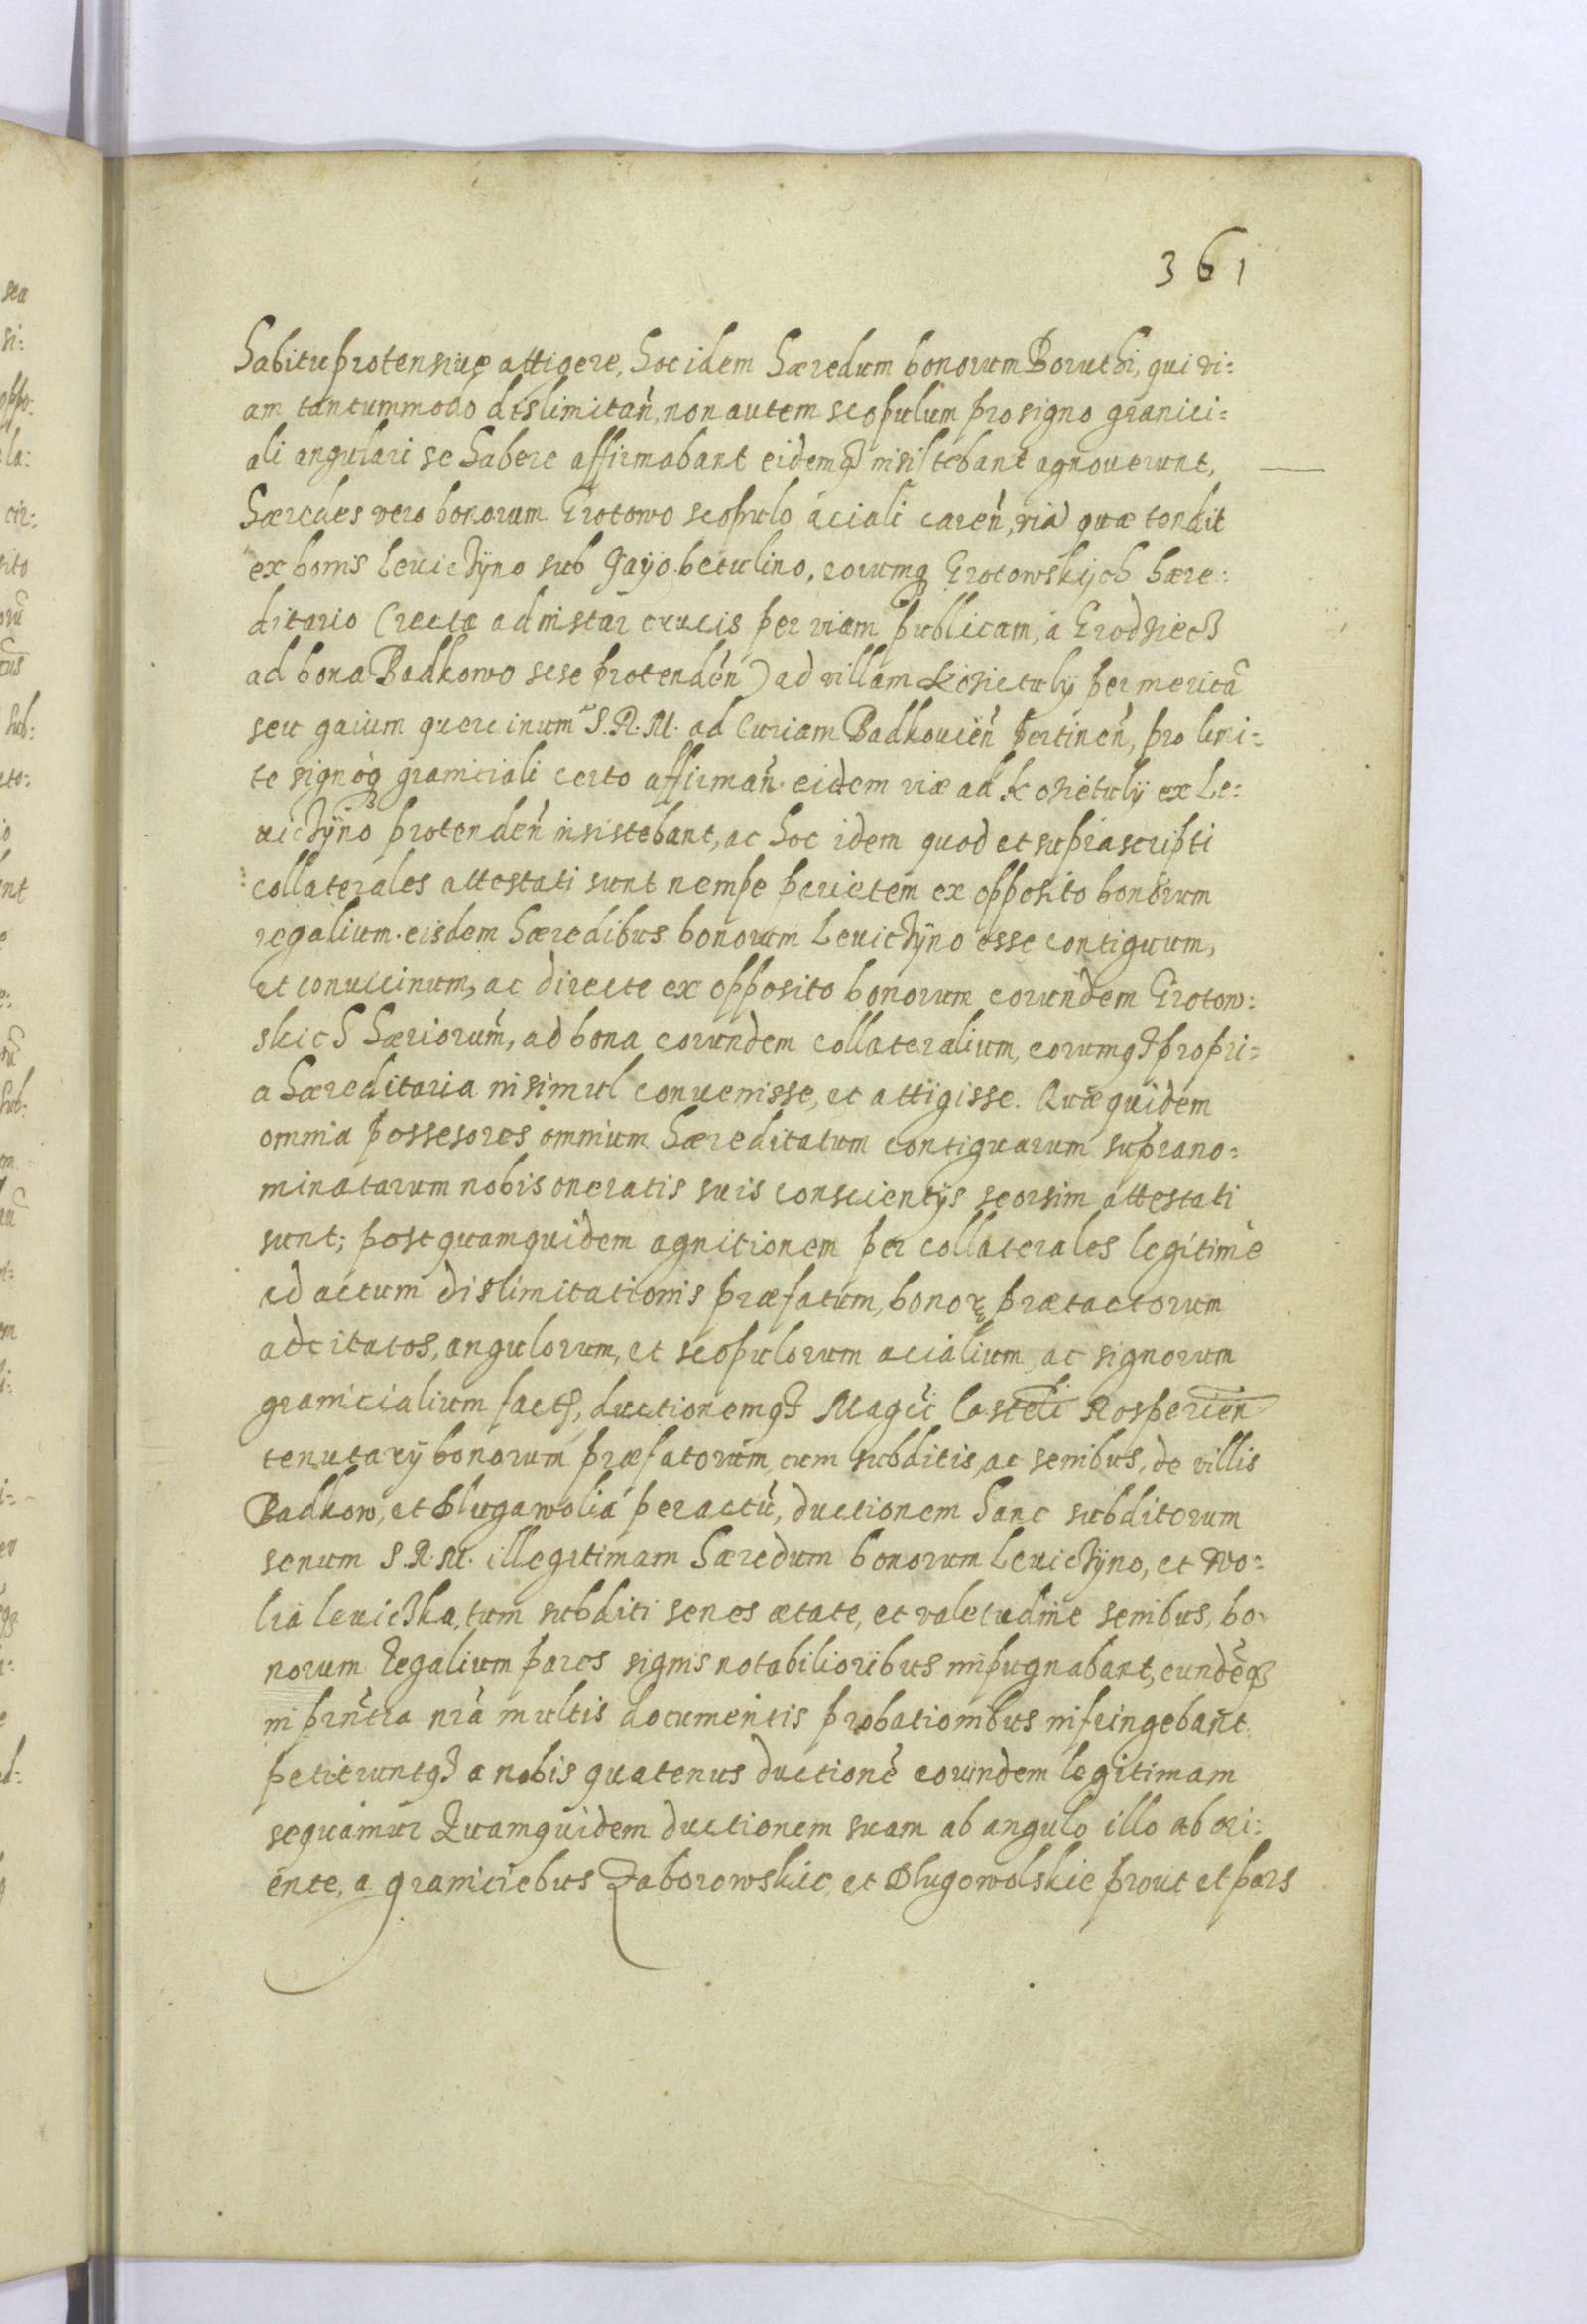 361
habitu protensivę attigere, hoc idem hæredum bonorum Boruchi, qui vi:
am tantummodo dislimitan̄, non autem scopulum pro signo granici:
ali angulari se habere affirmabant eidemq₃ insistebant agnoverunt,
hæredes vero bonorum Grotowo scopulo aciali caren̄, via quæ tendit
ex bonis Leviczÿno sub Gaÿo betulino, eorumq₃ Grotowskich hære:
ditario (recta ad instar crucis per viam publicam, a Grodziecz
ad bona Badkowo sese protenden̄) ad villam Kozietulÿ per mericā
seu gaium quercinum S. R. M. ad Curiam Badkovien̄ pertinen̄, pro limi:
te signoq₃ graniciali certo affirman̄. eidem viæ ad Kozietulÿ ex Le:
viczÿno protenden̄ insistebant, ac hoc idem quod et suprascripti
collaterales attestati sunt nempe parietem ex opposito bonorum
regalium eisdem hæredibus bonorum Leviczÿno esse contiguum,
et convicinum, ac directe ex opposito bonorum eorundem Grotow:
skich hæriorum̄, ad bona eorundem collateralium, eorumq₃ propri:
a hæreditaria insimul convenisse, et attigisse. Quæquidem
omnia possesores omnium hæreditatum contiguarum suprano:
minatarum nobis oneratis suis conscientÿs seorsim attestati
sunt; postquamquidem agnitionem per collaterales legitime
ad actum dislimitationis præfatum, bonoꝝ prætactorum
adcitatos, angulorum, et scopulorum acialium, ac signorum
granicialium fact̄, ductionemq₃ Magc̄i Castell̄i Rosperien̄
tenutarÿ bonorum præfatorum, cum subditis, ac senibus, de villis
Badkow, et Dlugawolia peractū, ductionem hanc subditorum
senum S. R. M. illegitimam hæredum bonorum Leviczÿno, et Wo:
lia Leviczka, tum subditi senes ætate, et valetudine senibus, bo:
norum Regalium pares signis notabilioribus impugnabant, eundēq₃
in prn̄tia nr̄a multis documentis probationibus infringebant.
petieruntq₃ a nobis quatenus ductionē eorundem legitimam
sequamur Quamquidem ductionem suam ab angulo illo ab ori:
ente, a graniciebus Zaborowskie, et Dlugowolskie prout et pars